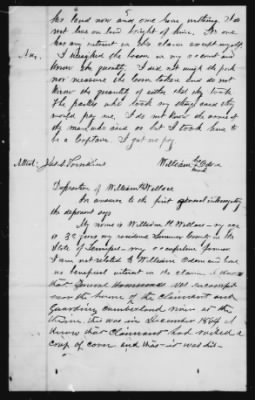 his land now and owe him nothing. I do
not live on land bought of him. No one
has any interest in this claim except myself.
Ans. I weighed the bacon in my second and
know the quantity. I did not weigh the pork
nor measure the corn taken and do not
know the quantity of either that they took
The parties who took my things said they
would pay me. I do not know the names of
the men who said so but I took him to
be a Captain. I got no pay
Attest: William his Odom
mark
Deposition of William H Wallace
In answer to the first general interrogatory
the deponent says
My name is William H. Wallace - my age
is 38 years my residence Sumner County in the
State of Tennessee - my occupation farmer
I am not related to William Odom and have
no beneficial interest in the claim. I know
that General was encamped
near the home of the claimant and
Guarding Cumberland river at the
time, this was in December 1864. I
know that Claimant had raised a
crop of corn and that it was his